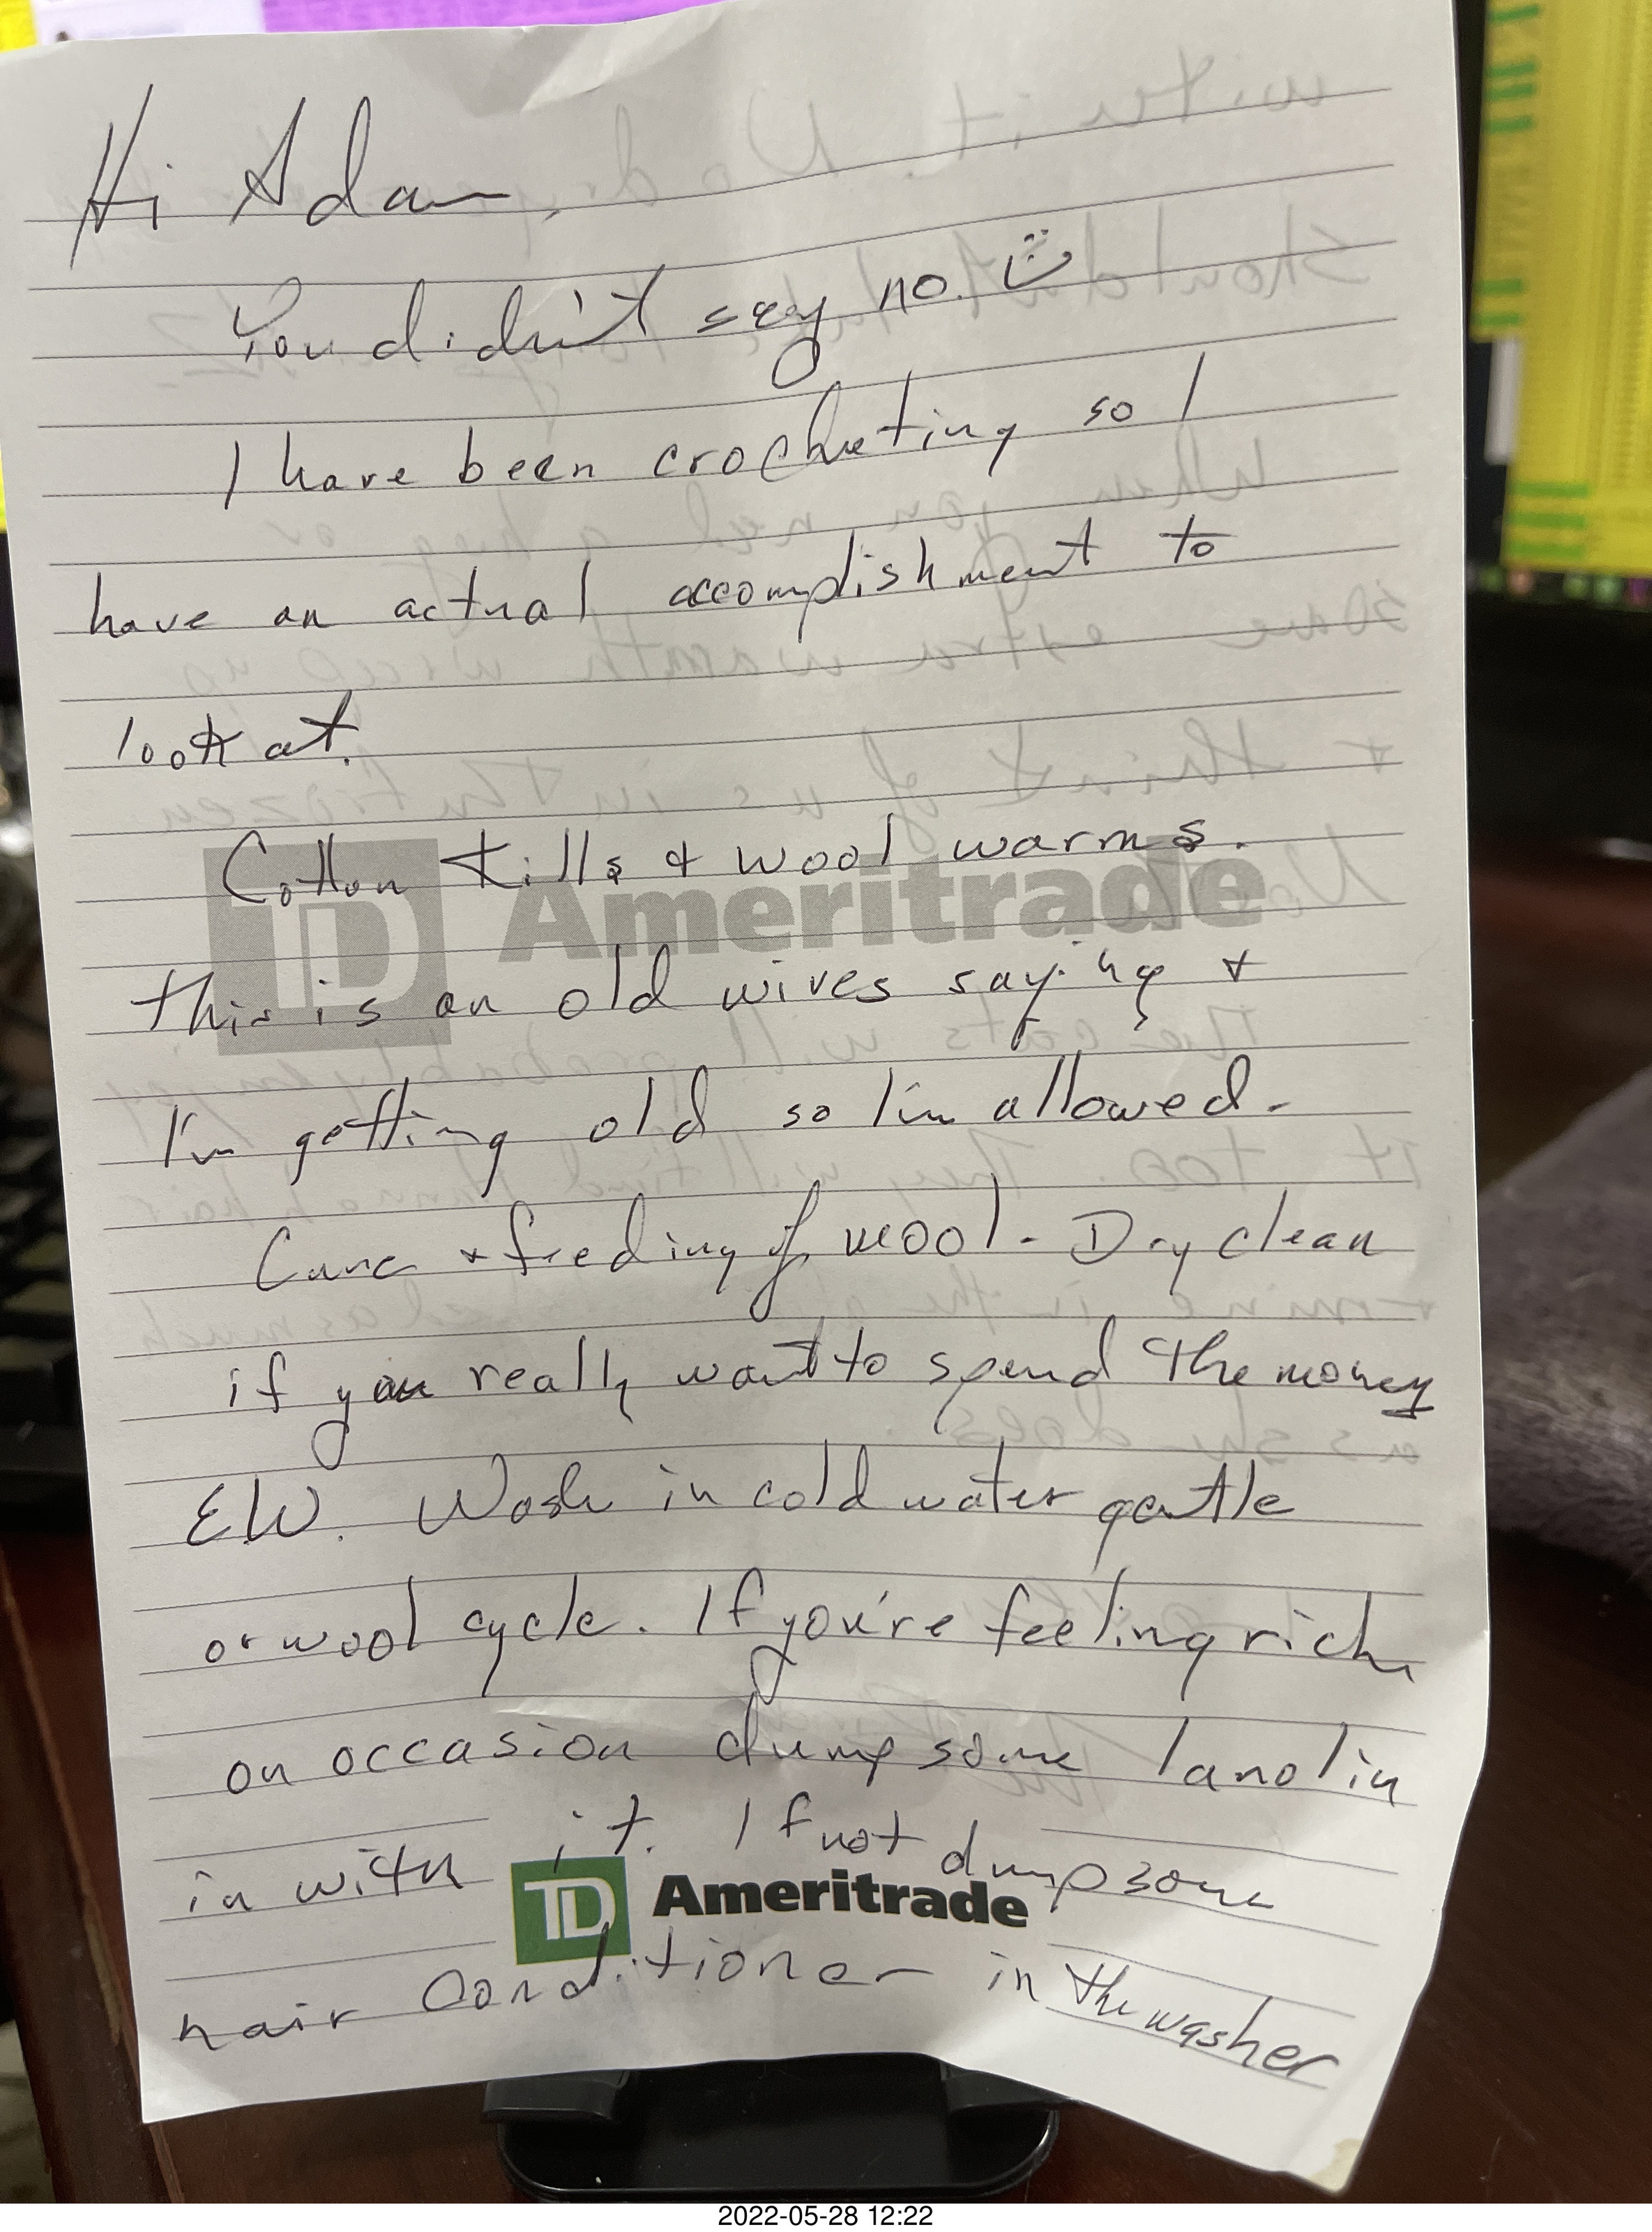 Hi Adam,
You didn't say no. ☺
I have been crocheting so I
have an actual accomplishment to
look at.
Cotton kills & wool warms.
TD Ameritrade
this is an old wives saying &
I'm getting old so I'm allowed.
Care & feeding of wool. Dry clean
if you really want to spend the money
EW. Wash in cold water gentle
or wool cycle. If you're feeling rich
on occasion dump some lanolin
in with it. If not dump some
TD Ameritrade
hair conditioner in the washer
2022-05-28 12:22